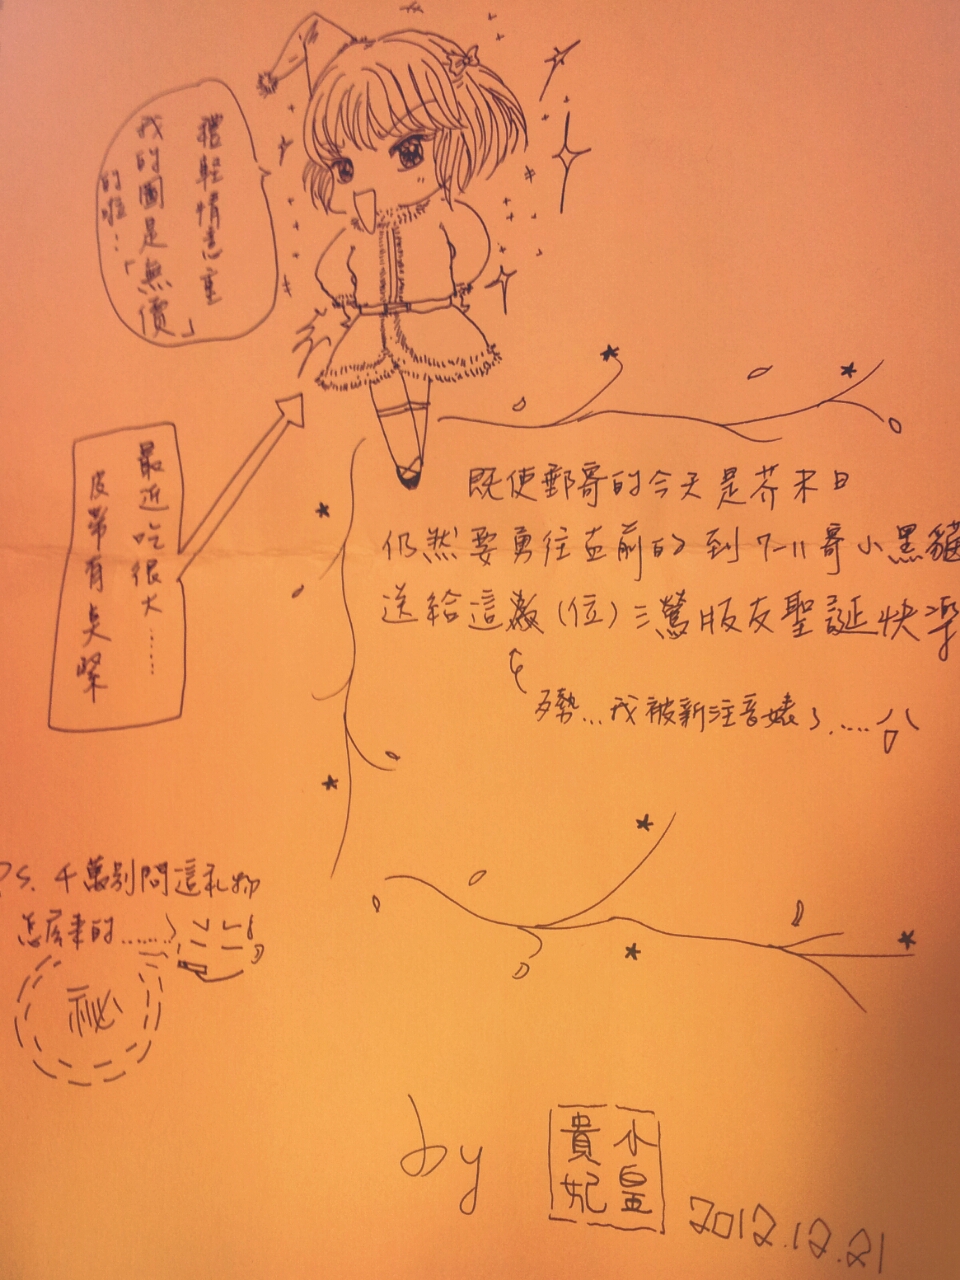 禮輕情意重
我的圖是「無價」
的啦…
最近吃很大……
皮帶有點緊
既使郵寄的今天是芥末日
仍然要勇往直前的到7-11寄小黑貓
送給這敝(位)三鶯版友聖誕快樂
歹勢…我被新注音婊了……
PS. 千萬別問這礼物
怎麼來的……
祕
by
小皇
貴妃
2012.12.21